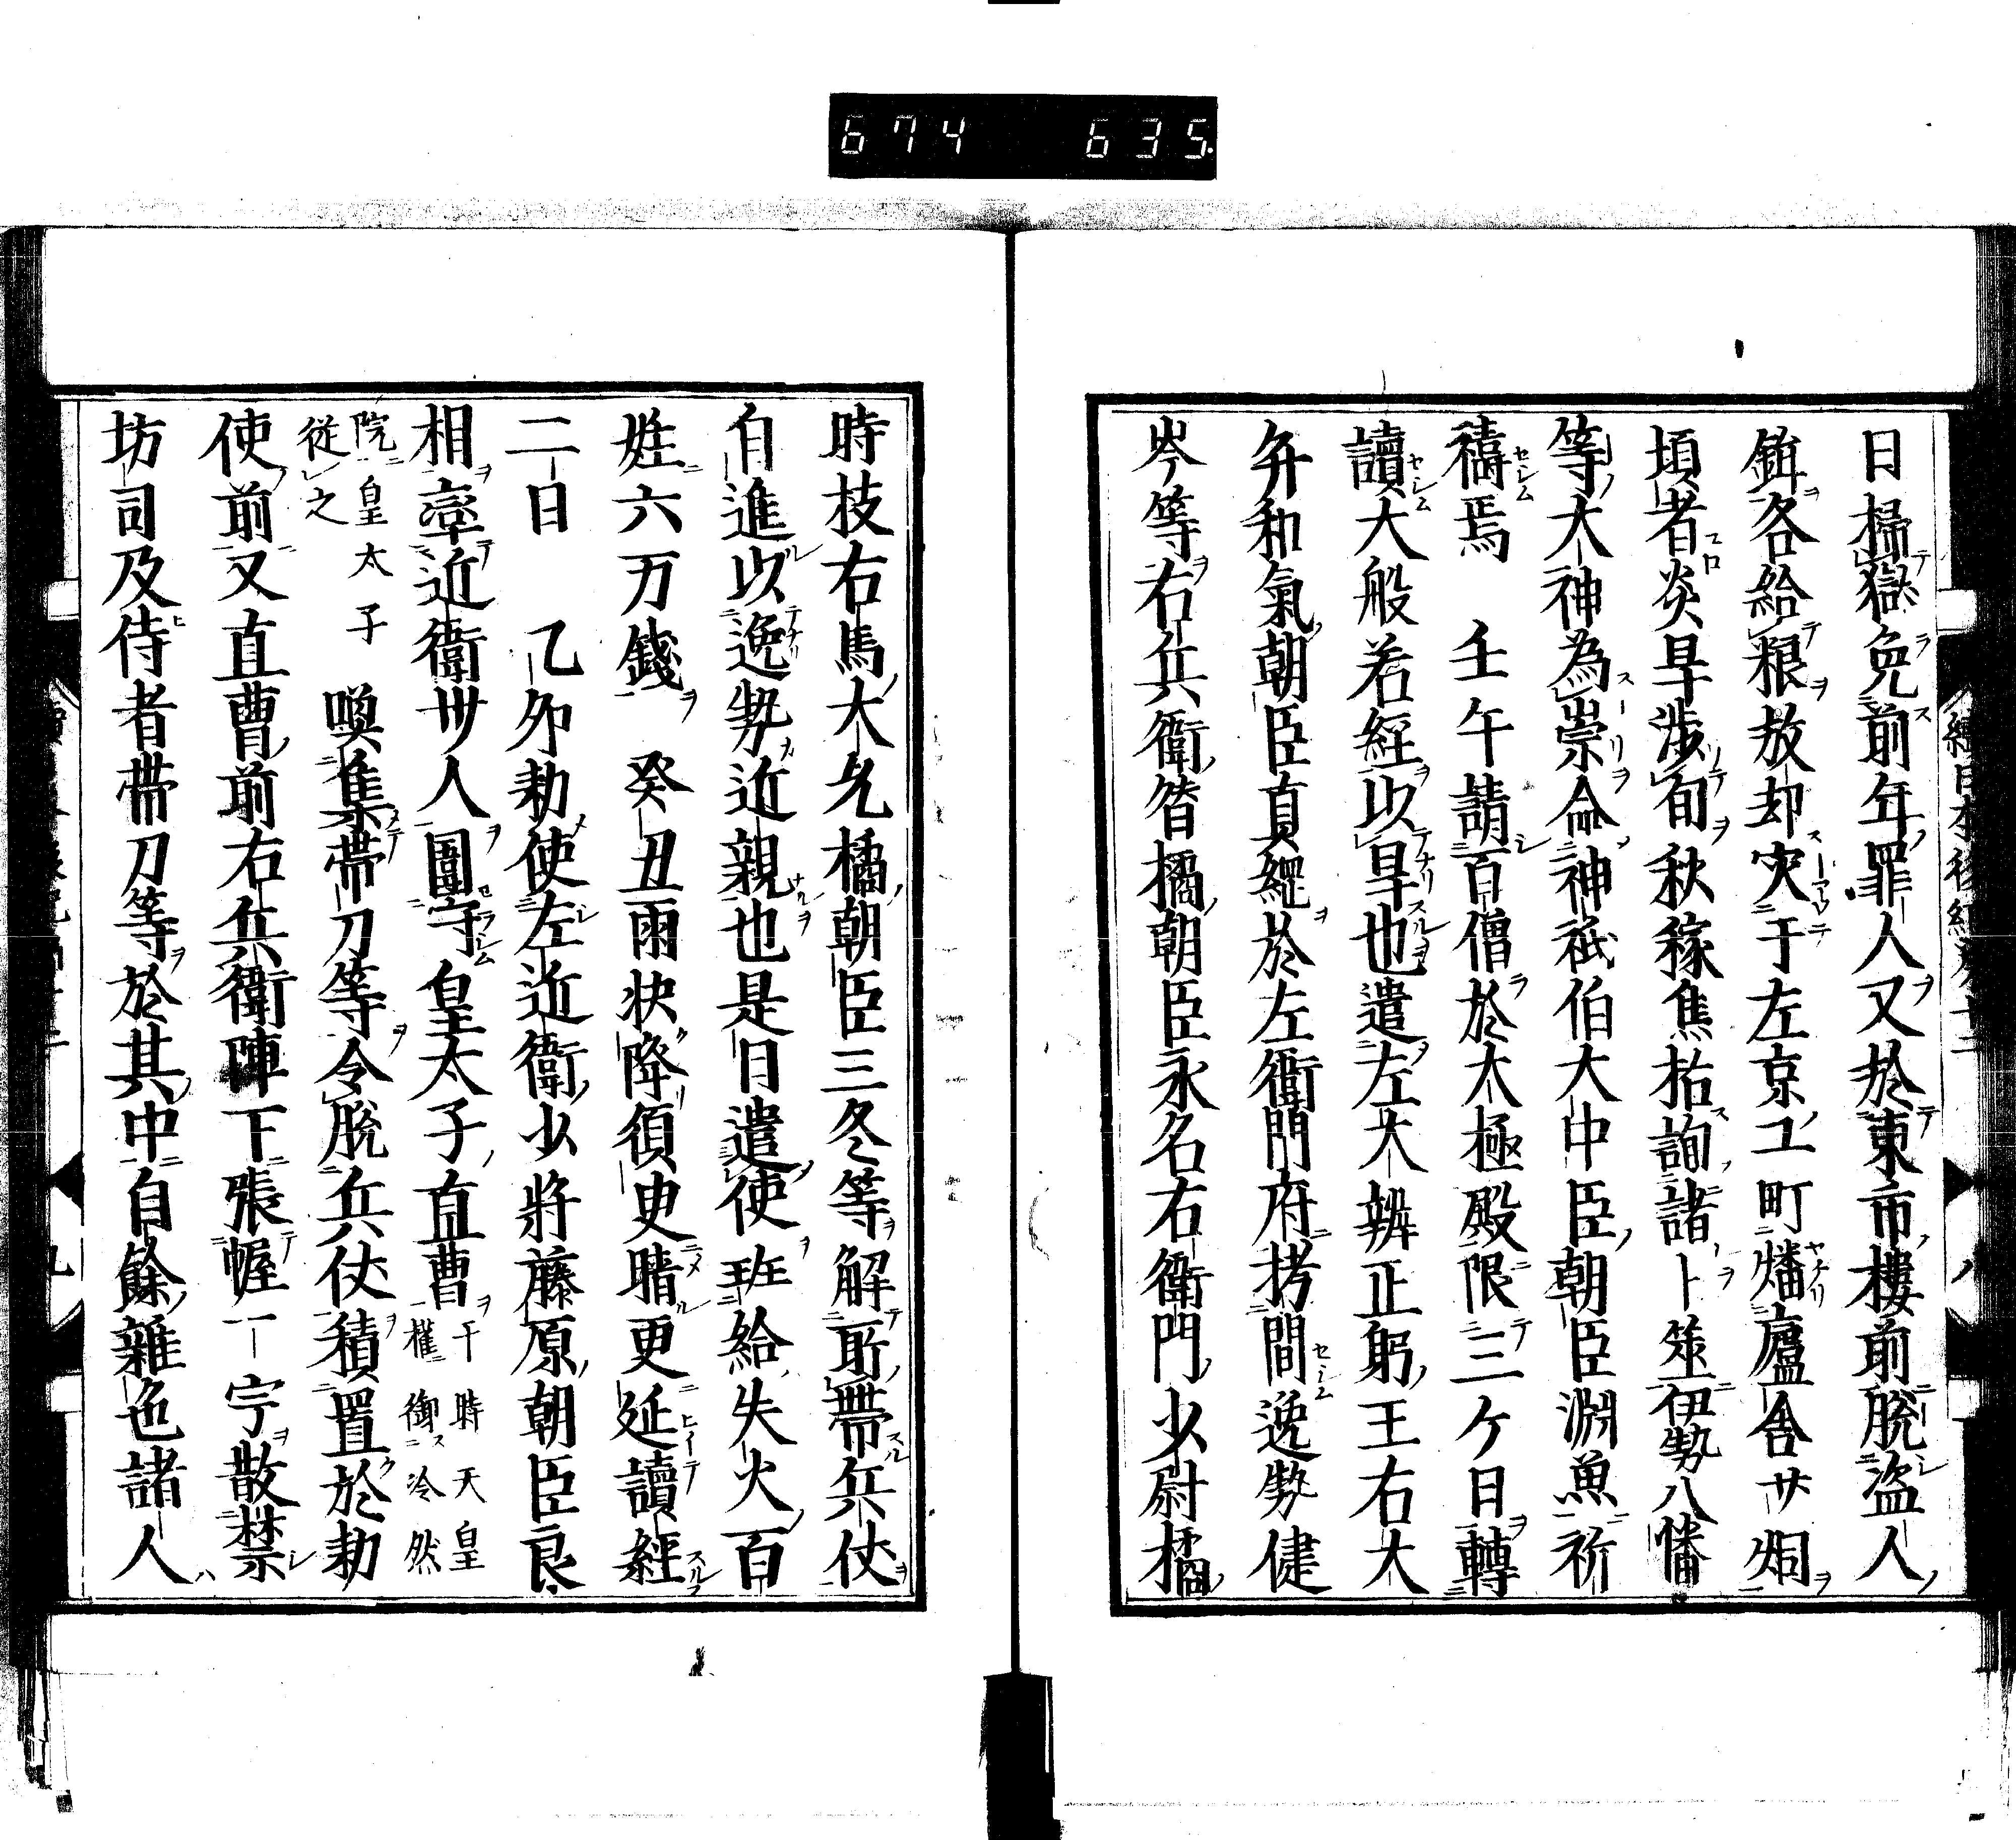 674 635
日掃獄免前年罪人又於東市樓前脱盜人
鉗各給粮放却灾于左京一町燔廬舍廿烟
頃者炎旱渉旬秋稼焦枯詢諸卜筮伊勢八幡
等大神為祟命神祇伯大中臣朝臣淵魚祈
禱焉 壬午請百僧於大極殿限三ケ日轉
讀大般若經以旱也遣左大辨正躬王右大
弁和氣朝臣真綱於左衛門府拷問逸勢健
岑等右兵衛督橘朝臣永名右衛門少尉橘
時枝右馬大允橘朝臣三冬等解所帶兵仗
自進以逸勢近親也是日遣使班給失火百
姓六万錢 癸丑雨快降須臾晴更延讀經
二日 乙卯勅使左近衛少將藤原朝臣良
相率近衛卌人圍守皇太子直曹于時天皇
權御冷然
院皇太子
從之喚集帶刀等令脱兵仗積置於勅
使前又直曹前右兵衛陣下張幄一宇散禁
坊司及侍者帶刀等於其中自餘雜色諸人